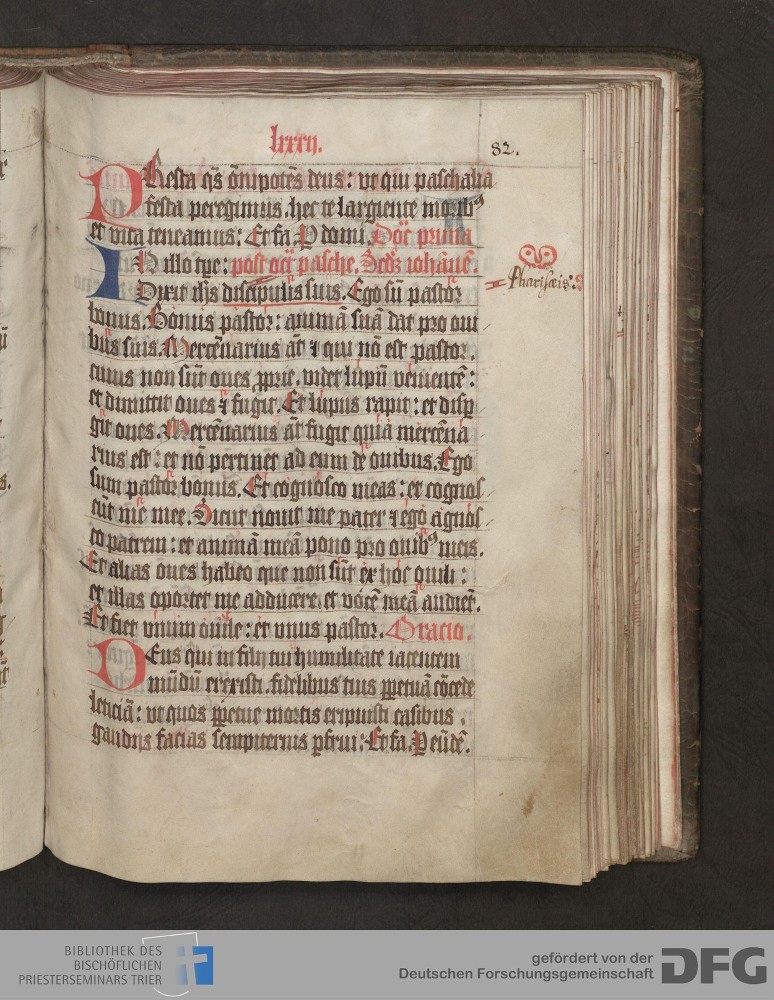 lxxxij.
82.
PResta q̄s om̄ipotēs deus: vt qui paschalia
festa peregimus. hec te largiente morib⁹
et vita teneamus: Et fa. P domi. Doc̄ prima
IN illo tp̄e: post oct̄ pasche. Scd̄z iohānē.
Dixit dn̄s discipulis suis. Ego sū pastor
Pharisæis:
bonus. Bonus pastor: animā suā dat pro oui
bus suis. Mercēnarius āt ⁊ qui nō est pastor.
cuius non sūt oues ꝓprie. videt lupū veniētē:
et dimittit oues ⁊ fugit. Et lupus rapit: et disp̄
git oues. Mercēnarius āt fugit quia mercēna
rius est: et nō pertinet ad eum de ouibus. Ego
sum pastor bonus. Et cognosco meas: et cognos
cūt me mee. Sicut nouit me pater ⁊ ego agnos
co patrem: et animā meā pono pro ouib⁹ meis.
Et alias oues habeo que non sūt ex hoc ouili:
et illas oportet me adducere. et vocē meā audiēt.
Et fiet vnum ouile: et vnus pastor. Oracio.
DEus qui in filij tui humilitate iacentem
mūdū erexisti. fidelibus tuis ꝑpetuā cōcede
leticiā: vt quos ꝑpetue mortis eripuisti casibus.
gaudijs facias sempiternis ꝑfrui: Et fa. P eūdē.
BIBLIOTHEK DES
BISCHÖFLICHEN
PRIESTERSEMINARS TRIER
gefördert von der
Deutschen Forschungsgemeinschaft DFG